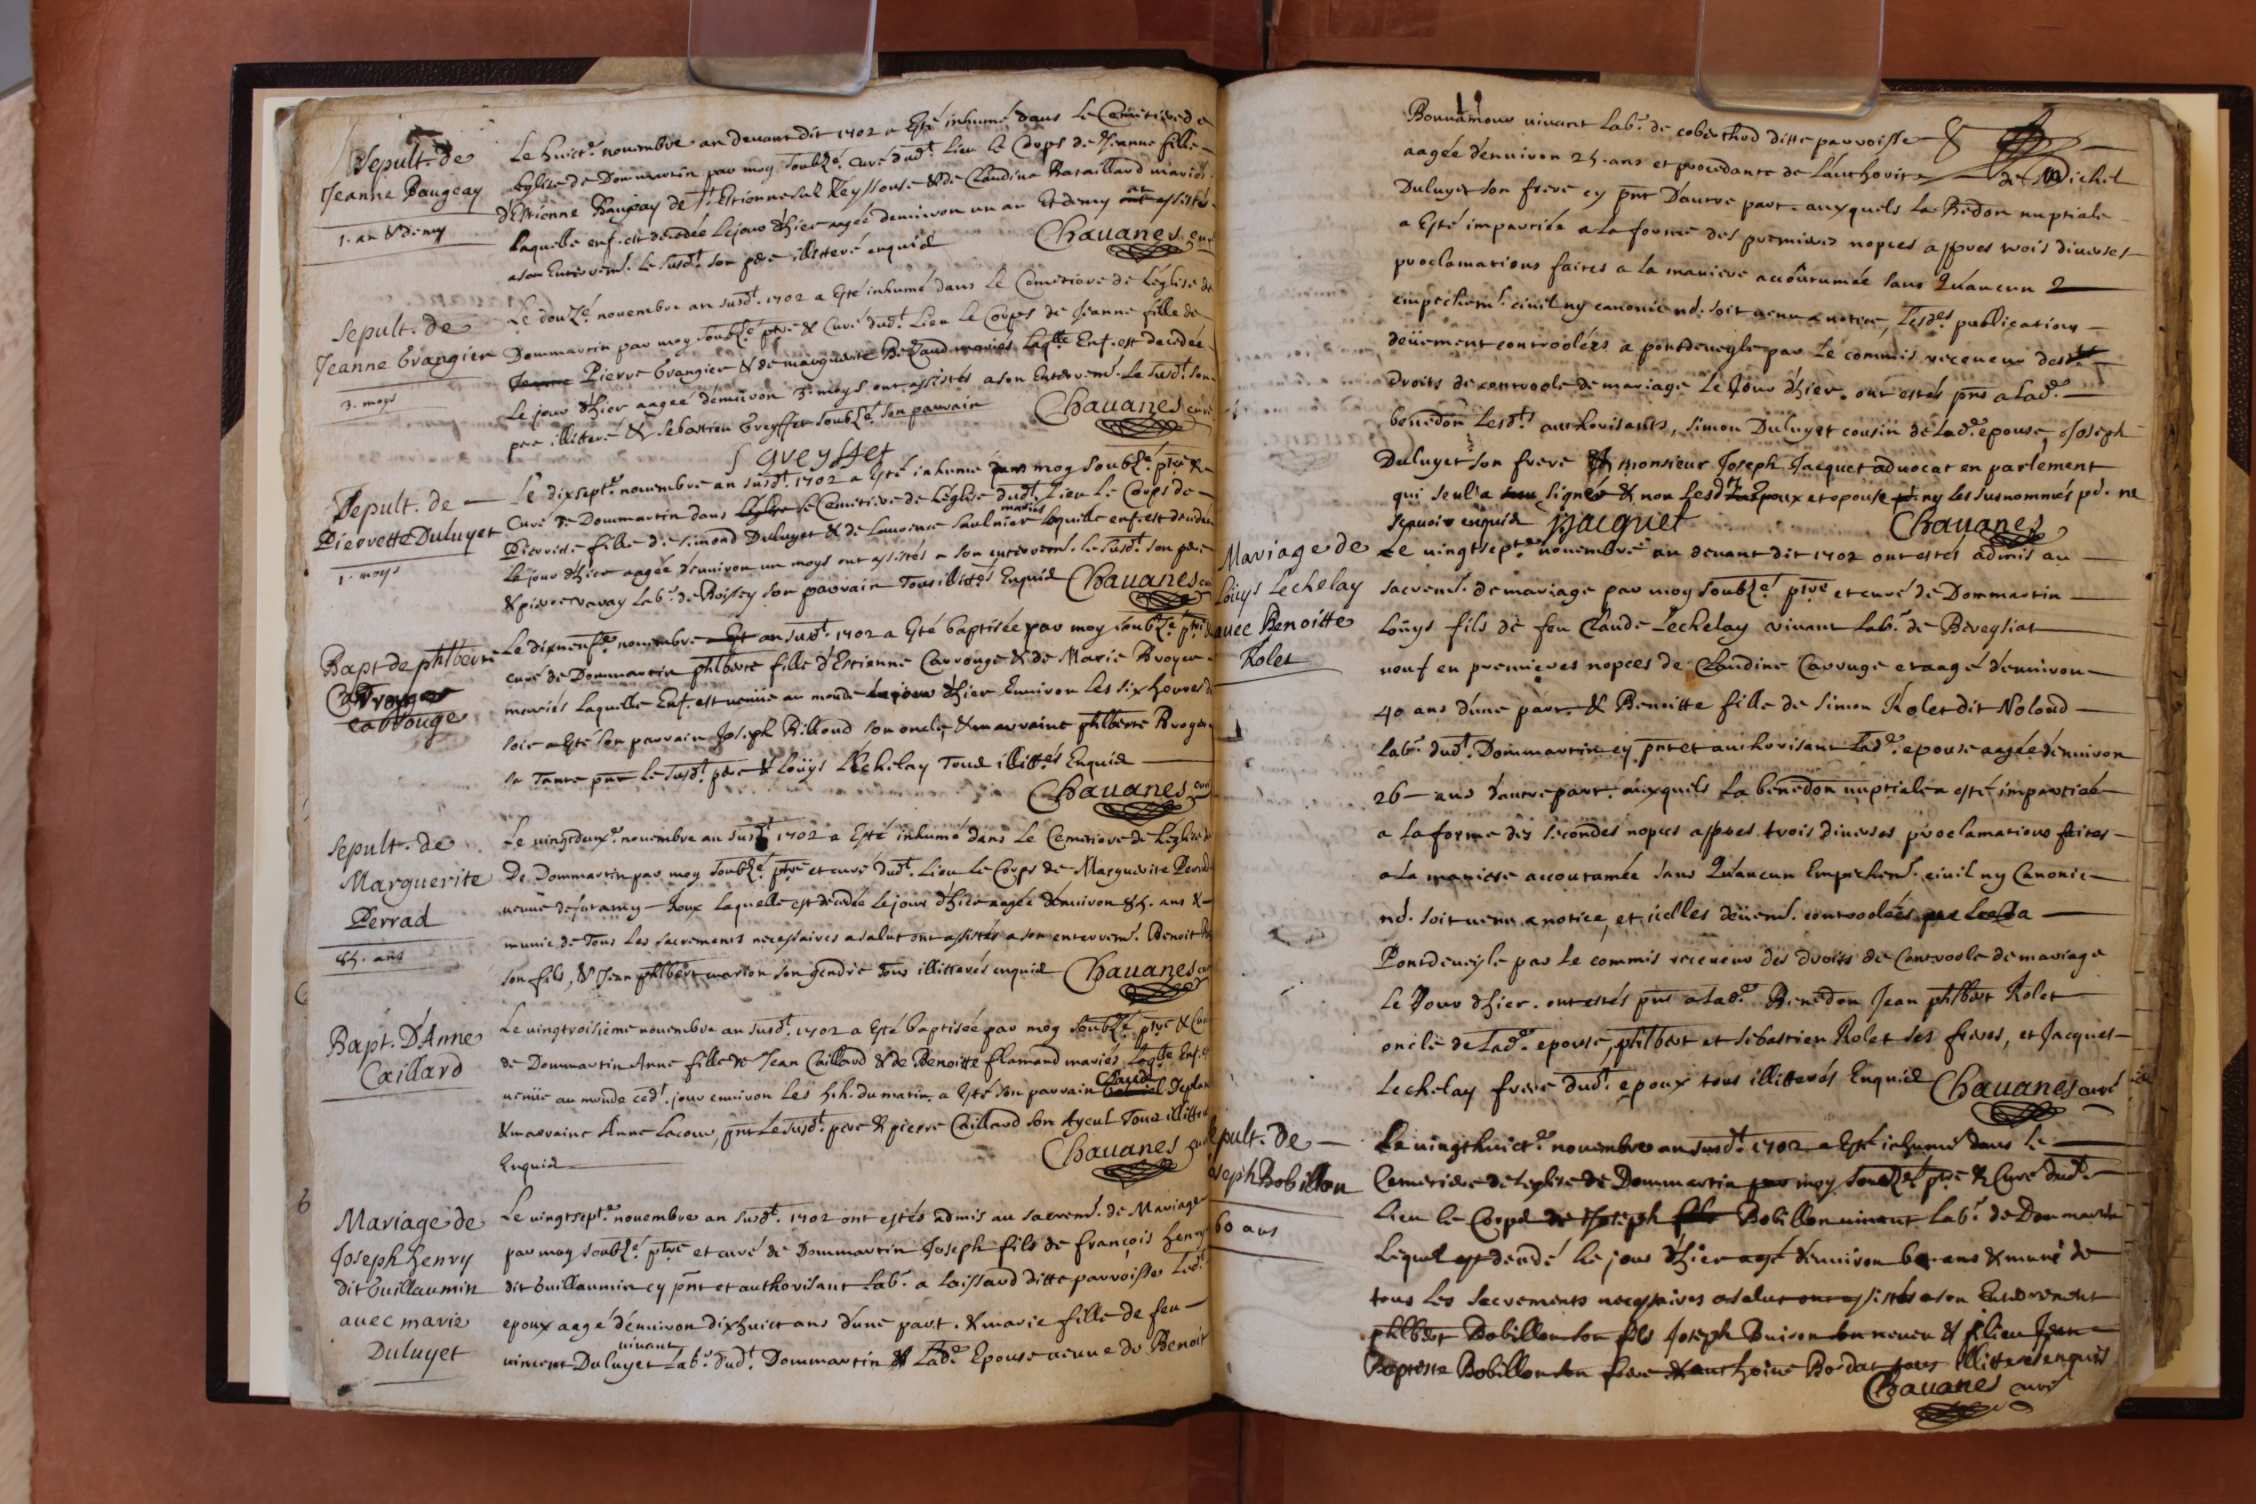 Sepult. de
Jeanne Paugeay
1. an & demy
Le huict.e novembre an devant dit 1702 a Esté inhumé dans Le Cemetiere de
Leglise de Dommartin par moy soubz.é curé dud.t Lieu Le Corps de Jeanne fille
d'Estienne Paugeay de s.t Estienne sur Reyssouse & de Claudine Bataillard mariés
Laquelle enf. est decedée Le jour d'hier agée denuiron un an Et demy ont assistés
a son Enterrem.t Le susd.t son pere illitteré enquid
Chauanes curé
Sepult. de
Jeanne Grangier
3. moys
Le douz.e novembre an susd.t 1702 a Esté inhumé dans Le Cemetiere de Leglise de
Dommartin par moy soubz.é ptre & Curé dud.t Lieu Le Corps de Jeanne fille de
Pierre Grangier & de marguerite mariés Laq.lle Enf. est decedée
Le jour d'hier aageé denuiron 3. moys ont assistés a son Enterrem.t Le susd.t son
pere illitteré & Sebastien Greyffet soubz.é son parrain
Chauanes curé
S greyffet
Sepult. de
Pierrette Duluyet
1. moys
Le dixsept.e novembre an susd.t 1702 a Esté inhumé par moy soubz.é ptre &
Curé de Dommartin dans Le Cemetiere de Leglise dud.t Lieu Le Corps de
Pierrette fille de simond Duluyet & de Laurence Saulnier mariés Laquelle enf. est decedée
Le jour d'hier aagée denuiron un moys ont assistés a son enterrem.t le susd.t son pere
& pierre vavay Lab.r de Boissey son parrain Tous illitt.és Enquid Chauanes curé
Bapt de philberte
Carrouge
Le dixneuf.e novembre an susd.t 1702 a Esté baptisée par moy soubz.é ptre
curé de Dommartin philberte fille d'Estienne Carrouge & de Marie Broyer
mariés Laquelle Enf. est venüe au monde Le jour d'hier Enuiron Les six heures du
soir a Esté son parrain Joseph Billoud son oncle & marraine philberte Broyer
sa Tante pnt Le susd.t pere & Loüys Lechelay Tous illitt.és Enquid
Chauanes curé
Sepult. de
Marguerite
Perrad
Le vingtdeux.e novembre an susd.t 1702 a Esté inhumé dans Le Cemetiere de Leglise
De Dommartin par moy soubz.é ptre et curé dud.t Lieu Le Corps de Marguerite Perrad
Laquelle est decedée Le jour d'hier aagée denuiron ans &
munie de Tous Les sacrements necessaires a salut ont assistés a son enterrem.t Benoit
son fils, & Jean philbert marion son gendre Tous illitterés enquid Chauanes curé
Bapt. D'Anne
Caillard
Le vingtroisieme novembre an susd.t 1702 a Esté baptisée par moy soubz.é ptre & Curé
de Dommartin Anne fille de Jean Caillard & de Benoitte flamand mariés Laq.lle Enf. est
venüe au monde ced.t jour enuiron Les h. du matin. a Esté son parrain Claude
& marraine Anne Lacour, pnt Le susd.t pere & pierre Caillard son Ayeul Tous illitterés
Enquid
Chauanes curé
Mariage de
Joseph henry
dit Guillaumin
avec marie
Duluyet
Le vingtsept.e novembre an susd.t 1702 ont estés admis au sacrem.t de Mariage
par moy soubz.é ptre et curé de Dommartin Joseph fils de françois henry
dit Guillaumin cy pnt et authorisant Lab.r a Laissard ditte parroisse Led.t
epoux aagé denuiron dixhuict ans d'une part. & marie fille de feu
vincent Duluyet vivant Lab.r dud.t Dommartin & Lad.e Epouse veuve de Benoit
Bonnamour vivant Lab.r de coberthod ditte parroisse
aagée denuiron 25. ans et procedante de Lauthorité de Michel
Duluyet son frere cy pnt D'autre part. auxquels La Bedon nuptiale
a Esté impartiée a La forme des premieres nopces appres trois diverses
proclamations faites a la maniere accoûtumée sans Qu'aucun
empechem.t civil ny canonic nd. soit venu a notice, Lesd.es publications
deüement controolées a pontdeveyle par Le commis receveur desd.
droits de controole de mariage Le Jour d'hier. ont estés pnts a Lad.e
benedon Lesd.ts authorisants, Simon Duluyet cousin de Lad.e epouse, Joseph
Duluyet son frere & monsieur Joseph Jacquet advocat en parlement
qui seul a signé & non Lesd.ts Epoux et epouse ny les susnommés pd. ne
sçavoir enquid Jjacquet Chauanes
Mariage de
Loüys Lechelay
avec Benoitte
Rolet
Le vingtsept.e novembre an devant dit 1702 ont estés admis au
sacrem.t de mariage par moy soubz.é ptre et curé de Dommartin
Loüys fils de feu Claude Lechelay vivant Lab.r de Bereysiat
veuf en premieres nopces de Claudine Carruge et aagé denuiron
40 ans d'une part. & Benoitte fille de Simon Rolet dit Noloud
Lab.r dud.t Dommartin cy pnt et authorisant Lad.e epouse aagée denuiron
26 ans d'autre part. auxquels La benedon nuptiale a esté impartiée
a La forme des secondes nopces appres trois diverses proclamations faites
a La maniere accoutumée sans Qu'aucun Empechem.t civil ny Canonic
nd. soit venu a notice, et icelles deüem.t controolées a
Pontdeveyle par Le commis receveur des droits de Controole de mariage
Le Jour d'hier. ont estés pnts a Lad.e Benedon Jean philbert Rolet
oncle de Lad.e epouse, philbert et sebastien Rolet ses freres, et Jacques
Lechelay frere dud.t epoux tous illitterés Enquid Chauanes curé
Sepult. de
Joseph Bobillon
60 ans
Le vingthuict.e novembre an susd.t 1702 a Esté inhumé dans Le
Cemetiere de Leglise de Dommartin par moy soubz.é ptre & Curé dud.t
Lieu Le Corps de Joseph Bobillon vivant Lab.r de Dommartin
Lequel est decedé Le jour d'hier agé denuiron 60 ans & muni de
tous Les sacrements necessaires a salut ont assistés a son Enterrement
philbert Bobillon son fils Joseph Buison son neveu & filieu Jean
Baptiste Bobillon son frere & anthoine Bordat tous illitterés enquis
Chauanes curé